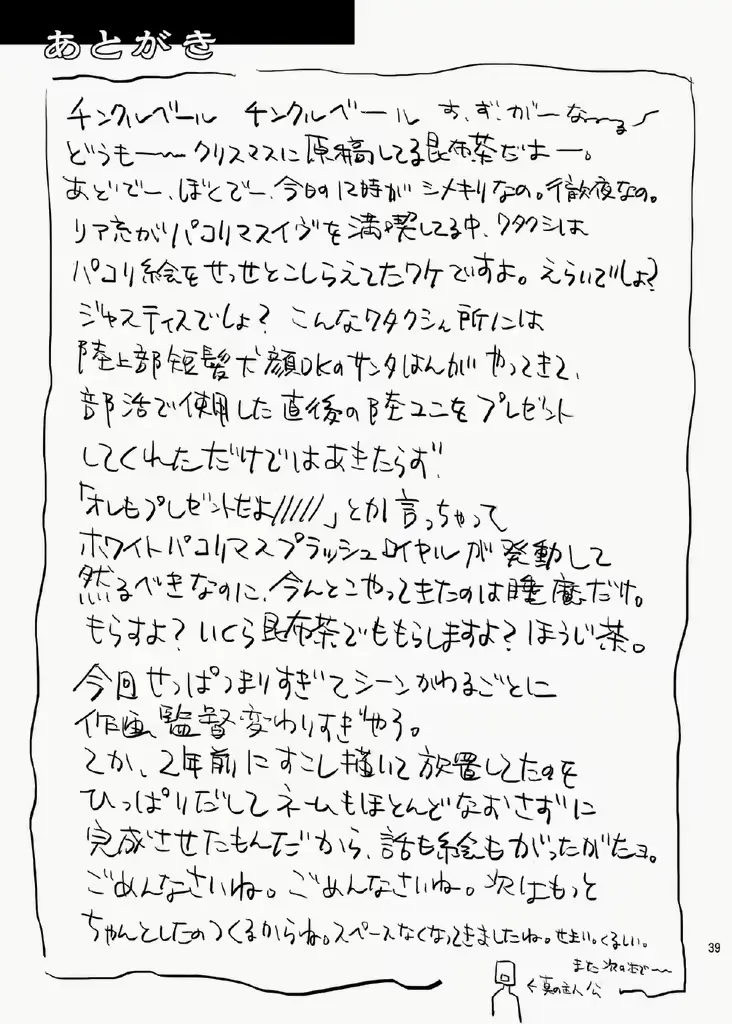 あとがき
チンクルベール チンクルベール す、ず、がーなーーるー
どうもー〜クリスマスに原稿してる昆布茶だよー。
あどでー、ぼくでー、今日の12時がシメキリなの。徹夜なの。
リア充がパコリマスイヴを満喫してる中、ワタクシは
パコリ絵をせっせとこしらえてたワケですよ。えらいでしょ?
ジャスティスでしょ? こんなワタクシん所には
陸上部短髪犬顔DKのサンタはんがやってきて、
部活で使用した直後の陸ユニをプレゼント
してくれただけではあきたらず、
「オレもプレゼントだよ/////」とか言っちゃって
ホワイトパコリマスプラッシュロイヤルが発動して
然るべきなのに、今んとこやってきたのは睡魔だけ。
もらすよ? いくら昆布茶でももらしますよ? ほうじ茶。
今回せっぱつまりすぎてシーンがわるごとに
作画監督変わりすぎやろ。
てか、2年前にすこし描いて放置してたのを
ひっぱりだしてネームもほとんどなおさずに
完成させたもんだから、話も絵もがったがたョ。
ごめんなさいね。ごめんなさいね。次はもっと
ちゃんとしたのつくるからね。スペースなくなってきましたね。せまい。くるしい。
また次の本で〜〜
←真の主人公
39